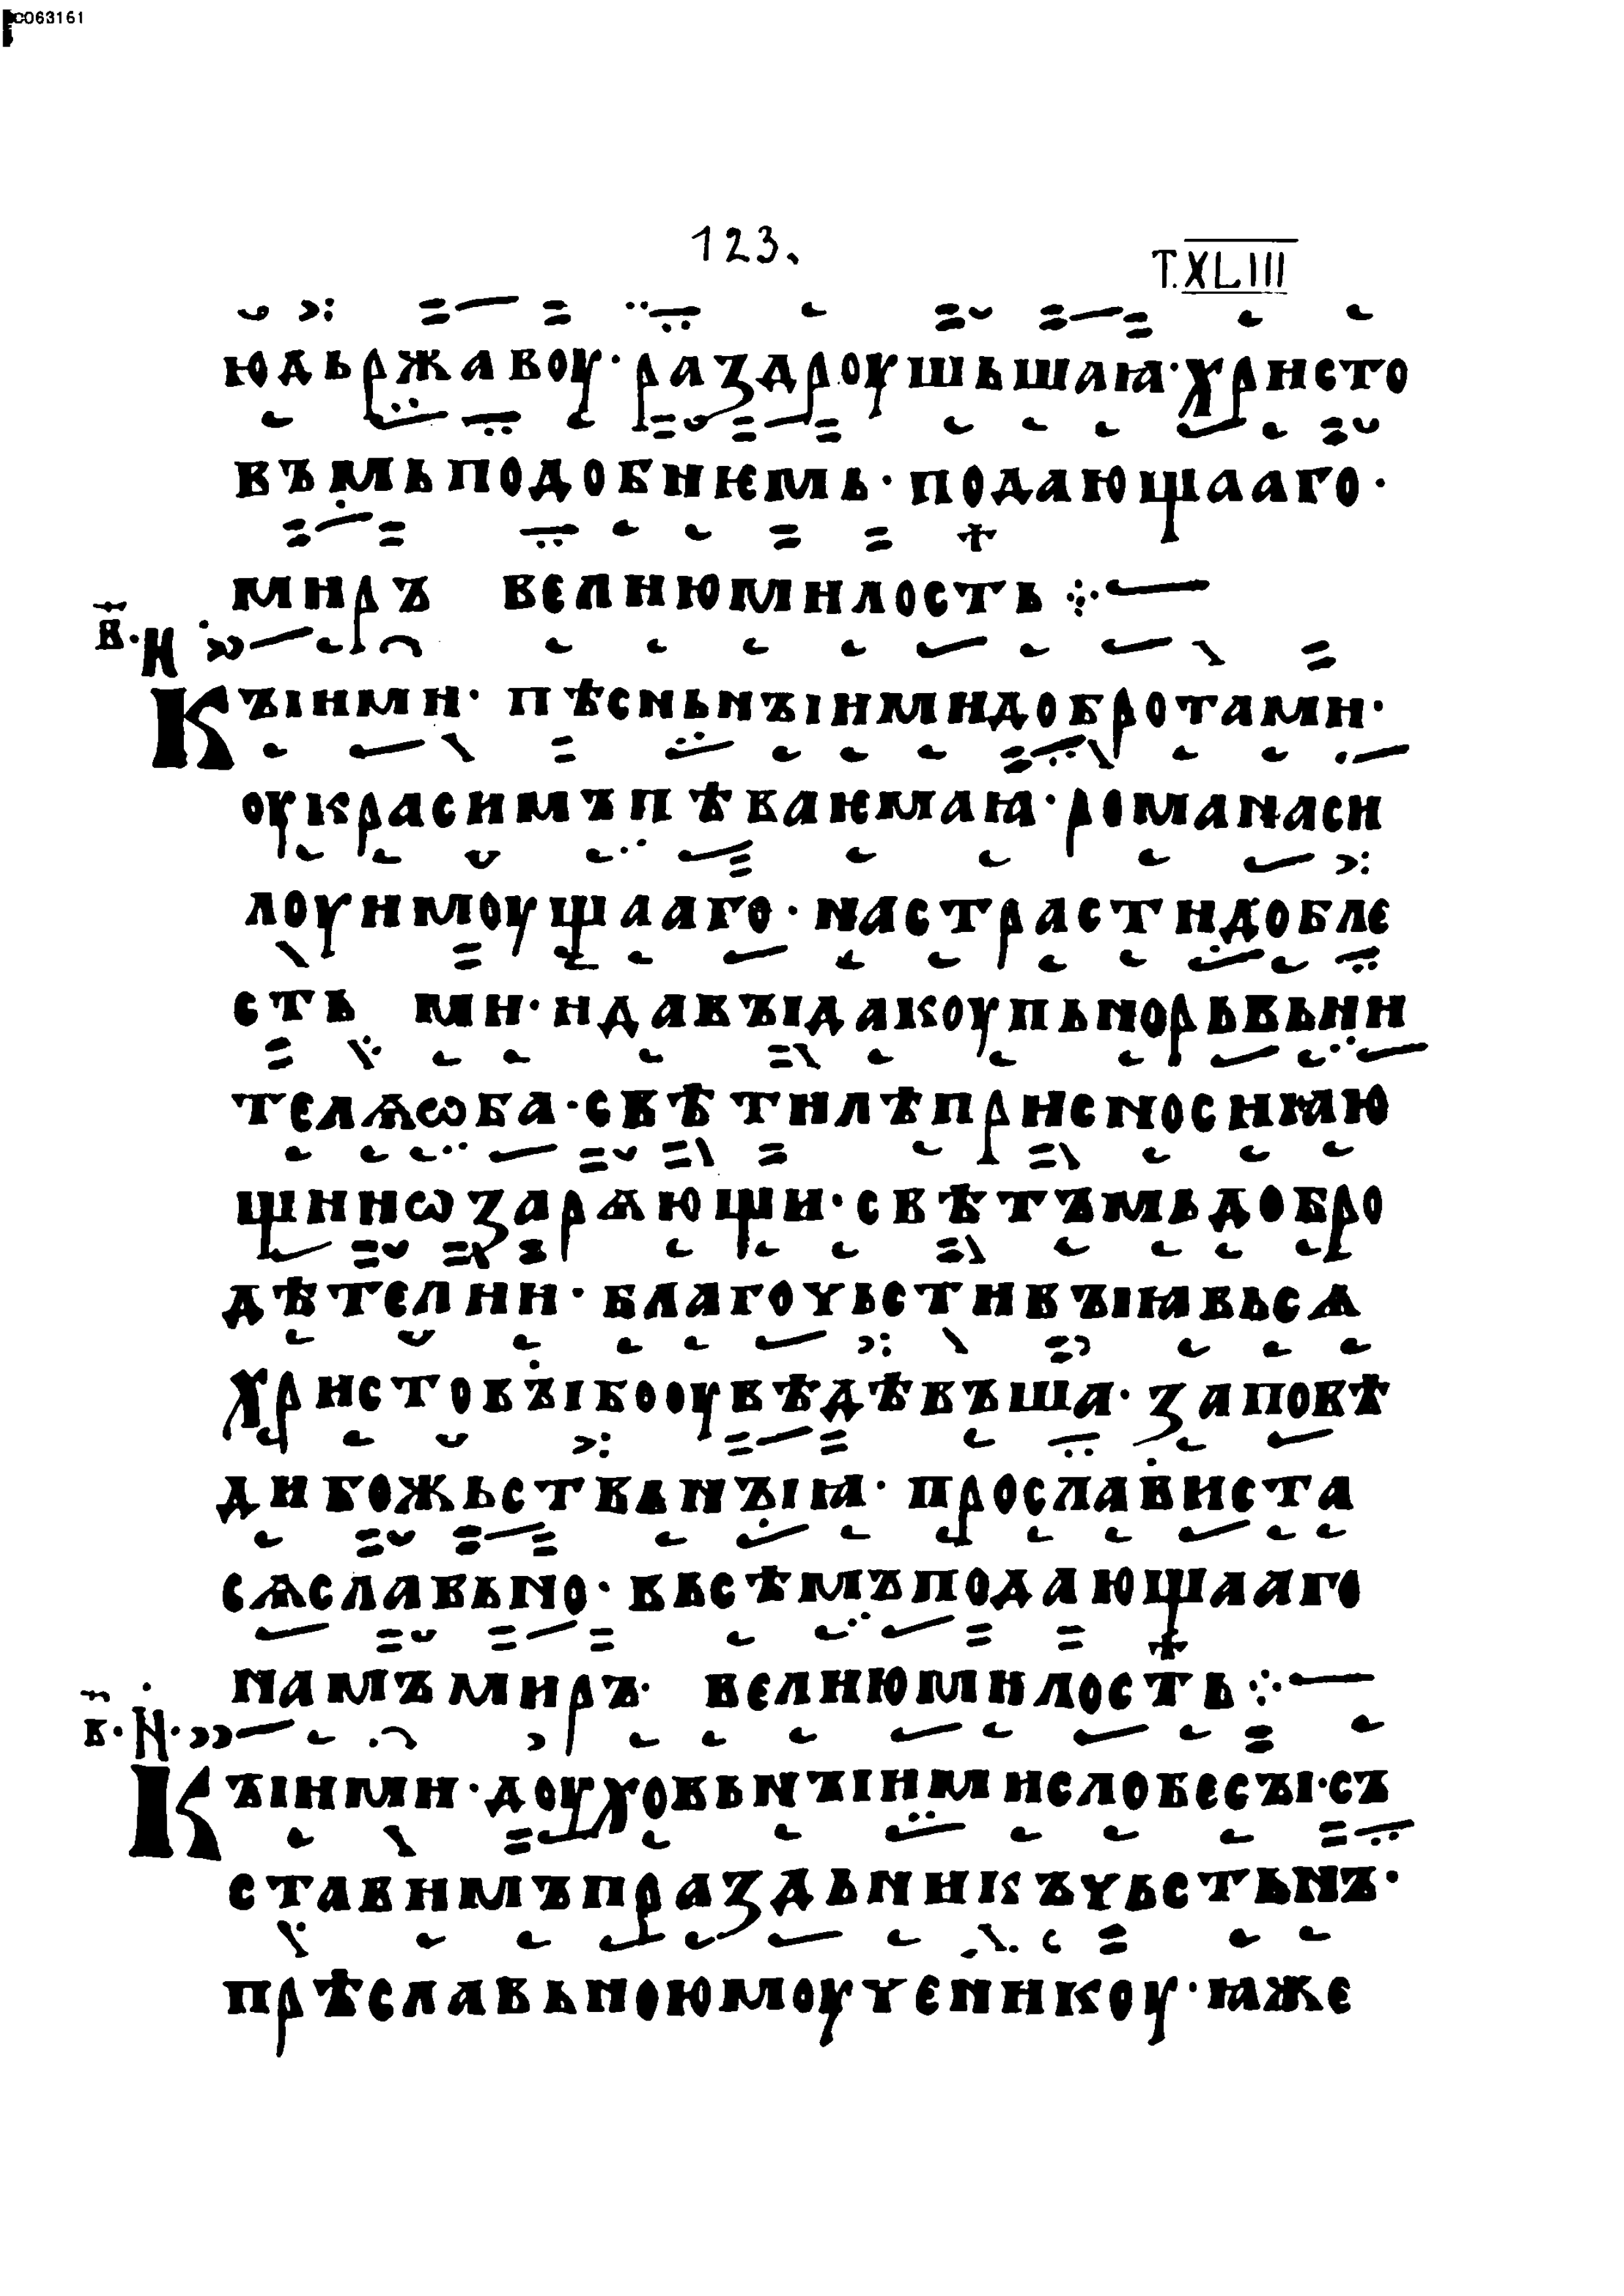 C063161
123.
T.XLIII
юдьржавоу· раздроушьшаꙗ· христо
въмь подобиѥмь· подающааго·
миръ велию милость ⁘—
в҃· и
Къіими· пѣсньнъіими добротами·
оукрасимъ пѣваѥмаꙗ· романа си
лоу имоущааго· на страсти добле
сть ми· и давъіда коупьно рьвьни
телѧ ѡба· свѣтилѣ присно сиꙗю
щи и ѡзарѧющи· свѣтъмь добро
дѣтелии· благоуьстивъіꙗ вьсѧ
христовъі бо оувѣдѣвъша· заповѣ
ди божьствьнъіꙗ· прослависта
сѧ славьно· вьсѣмъ подающааго
намъ миръ· велию милость ⁘—
в҃· и·
Къіими· доуховьнъіими словесъі· съ
ставимъ праздьникъ уьстьнъ·
прѣславьною моученикоу· ꙗже